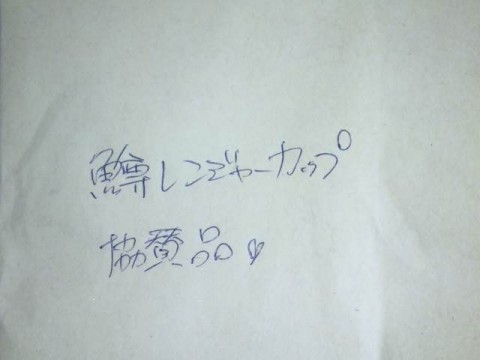 鱒レンジャーカップ
協賛品♡